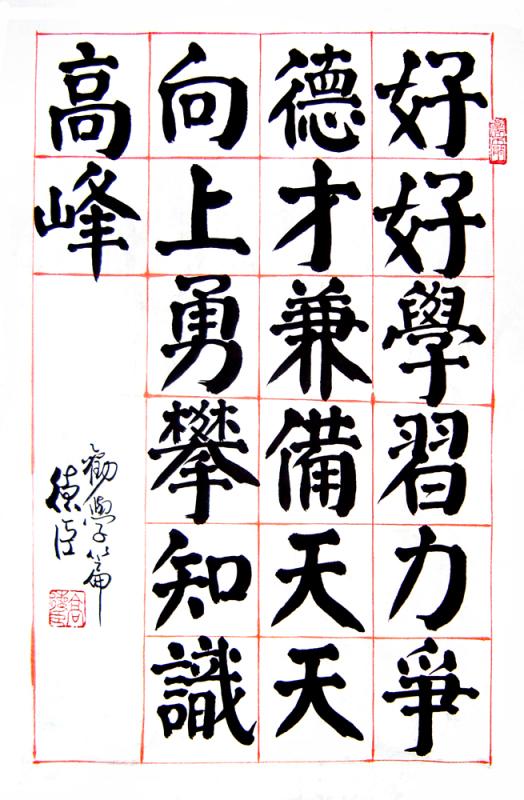 好好學習力爭
德才兼備天天
向上勇攀知識
高峰
勸學篇
德臣